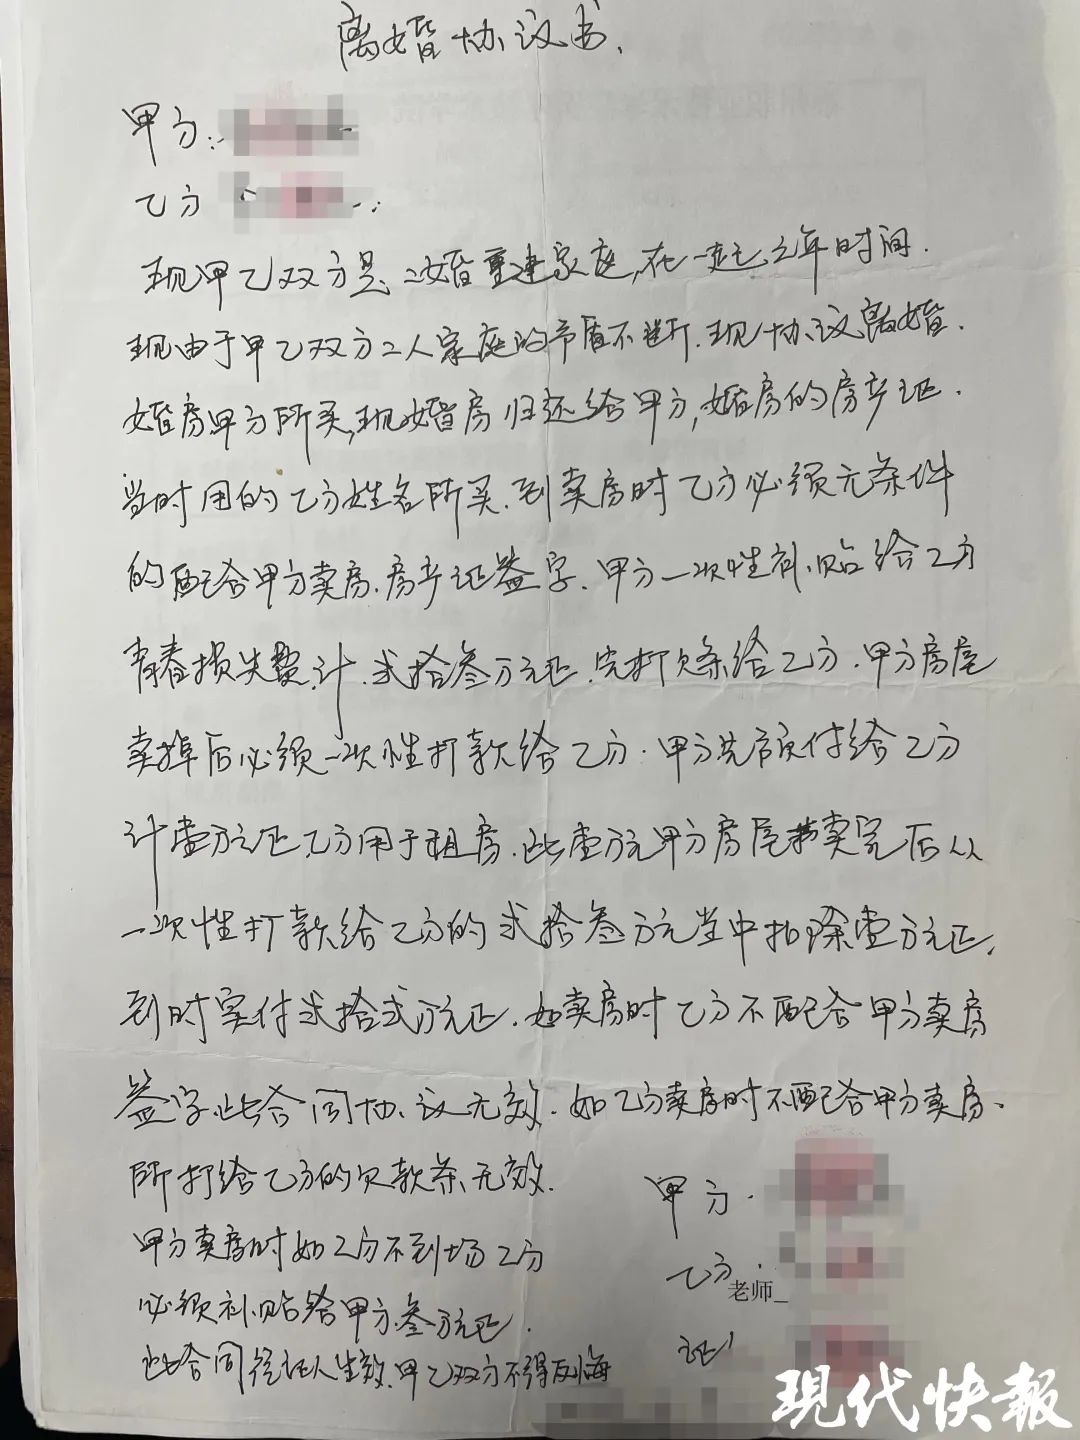 离婚协议书.
甲方:
乙方
现甲乙双方是二婚重建家庭,在一起三年时间.
现由于甲乙双方二人家庭的矛盾不断.现协议离婚.
婚房甲方所买,现婚房归还给甲方,婚房的房产证.
当时用的乙方姓名所买.到卖房时乙方必须无条件
的配合甲方卖房.房产证签字.甲方一次性补贴给乙方
青春损失费,计.弍拾叁万元正.先打欠条给乙方.甲方房屋
卖掉后必须一次性打款给乙方.甲方先预付给乙方
计壹万元正,乙方用于租房.此壹万元甲方房屋卖完后从
一次性打款给乙方的弍拾叁万元当中扣除壹万元正.
到时实付弍拾弍万元正.如卖房时乙方不配合甲方卖房
签字此合同协议无效.如乙方卖房时不配合甲方卖房.
所打给乙方的欠款条无效.
甲方卖房时如乙方不到场乙方
必须补贴给甲方叁万元正.
此合同经证人生效.甲乙双方不得反悔
甲方.
乙方.
老师_
证
现代快報